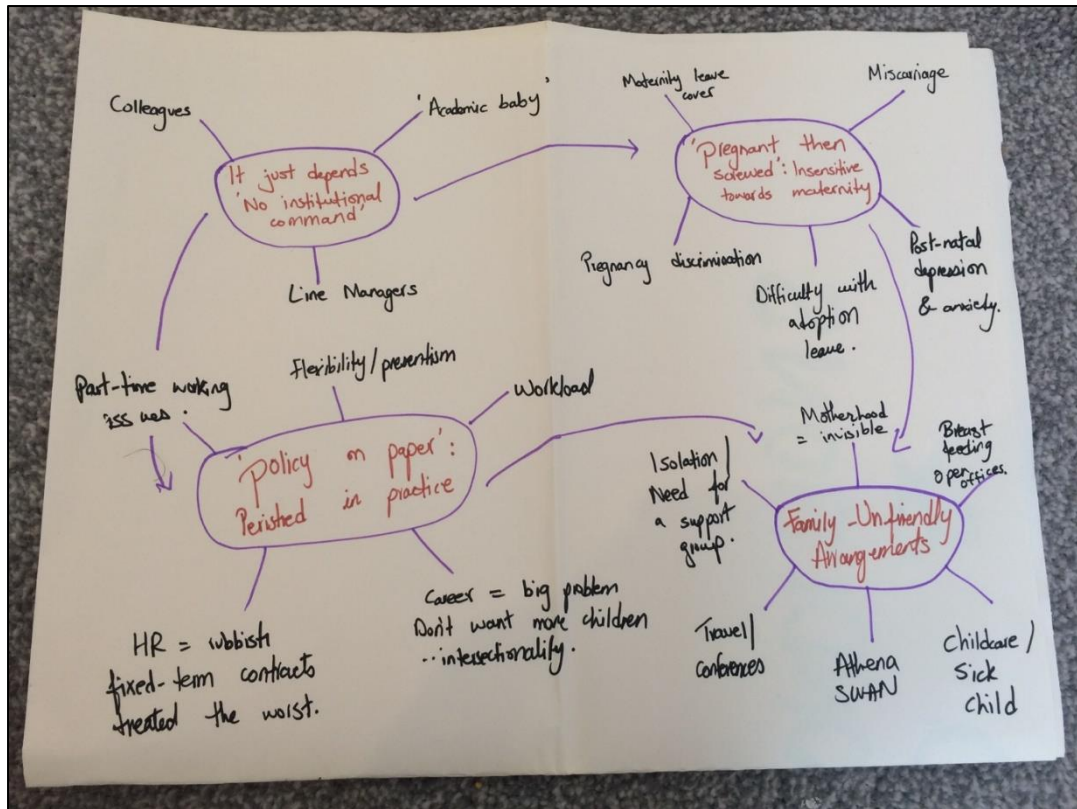 Colleagues
'Academic baby'
It just depends
'No institutional
command'
Line Managers
Maternity leave
cover
Miscarriage
'Pregnant then
screwed': Insensitive
towards maternity
Pregnancy discrimination
Difficulty with
adoption
leave.
Post-natal
depression
& anxiety.
Part-time working
issues.
Flexibility/presentism
Workload
'Policy on paper':
Perished in practice
HR = rubbish
fixed-term contracts
treated the worst.
Career = big problem
Don't want more children
..intersectionality.
Isolation/
Need for
a support
group.
Motherhood
= invisible
Breast
feeding
open
offices.
Family-Unfriendly
Arrangements
Travel/
conferences
Athena
SWAN
Childcare/
Sick
Child